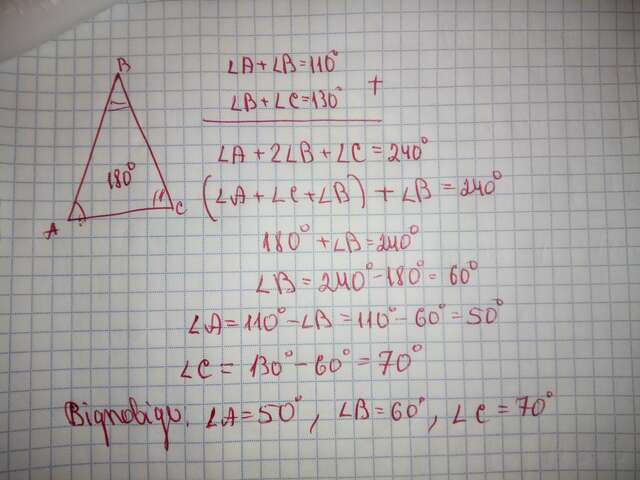 A
B
C
180°
∠A+∠B=110°
∠B+∠C=130°
+
∠A+2∠B+∠C=240°
(∠A+∠C+∠B)+∠B=240°
180°+∠B=240°
∠B=240°-180°=60°
∠A=110°-∠B=110°-60°=50°
∠C=130°-60°=70°
Відповідь: ∠A=50°, ∠B=60°, ∠C=70°